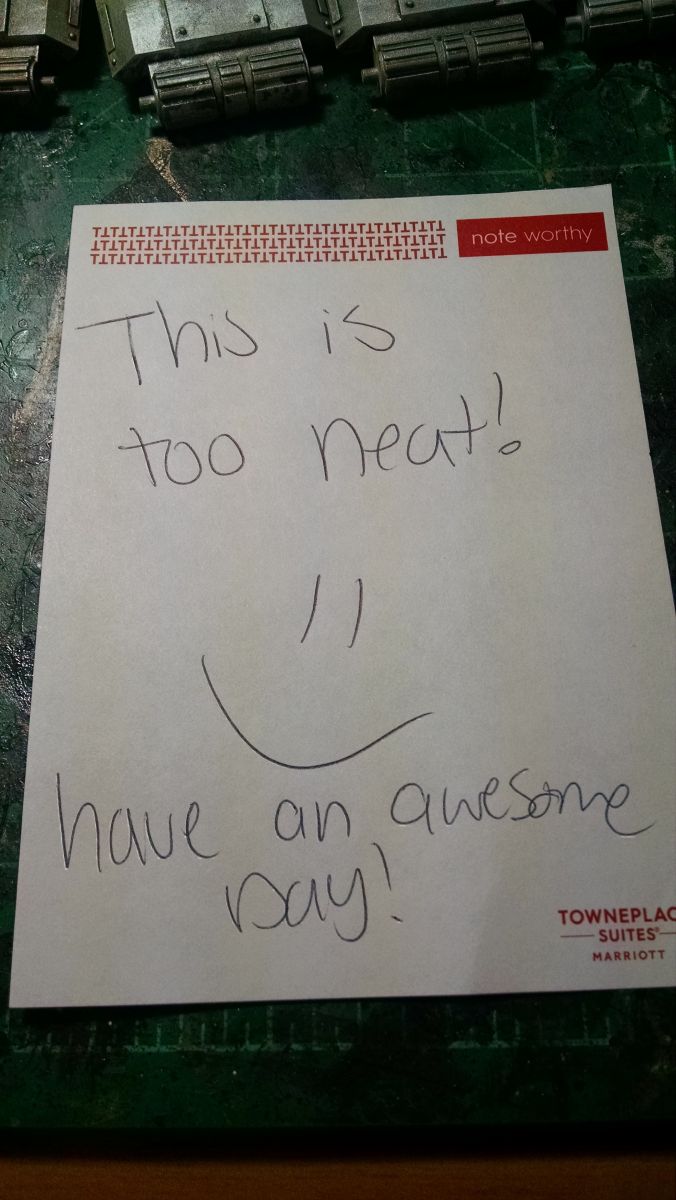 note worthy
This is
too neat!
have an awesome
Day!
TOWNEPLAC
SUITES®
MARRIOTT